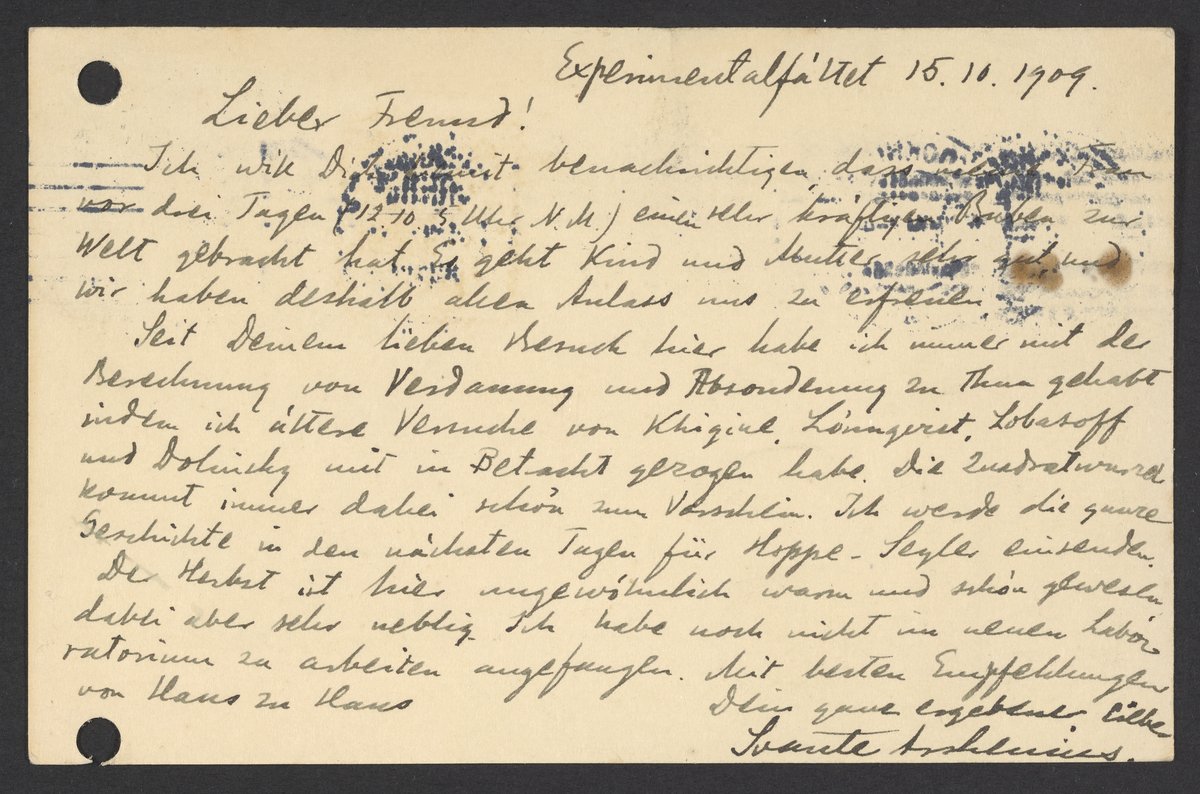 Experimentalfältet 15.10.1909.
Lieber Freund!
Ich will Dich hiermit benachrichtigen, dass meine Frau
vor drei Tagen (12 10 5 Uhr N.M.) einen sehr kräftigen Buben zur
Welt gebracht hat. Es geht Kind und Mutter sehr gut und
wir haben deshalb allen Anlass uns zu erfreuen.
Seit Deinem lieben Besuch hier habe ich immer mit der
Berechnung von Verdauung und Absonderung zu Thun gehabt
indem ich ältere Versuche von Khigine, Lönnqvist, Lobasoff
und Dolinsky mit in Betracht gezogen habe. Die Quadratwurzel
kommt immer dabei schön zum Vorschein. Ich werde die ganze
Geschichte in den nächsten Tagen für Hoppe-Seyler einsenden.
Der Herbst ist hier ungewöhnlich warm und schön gewesen
dabei aber sehr neblig. Ich habe noch nicht im neuen Labo-
ratorium zu arbeiten angefangen. Mit besten Empfehlungen
von Haus zu Haus
Dein ganz ergebener
Svante Arrhenius.